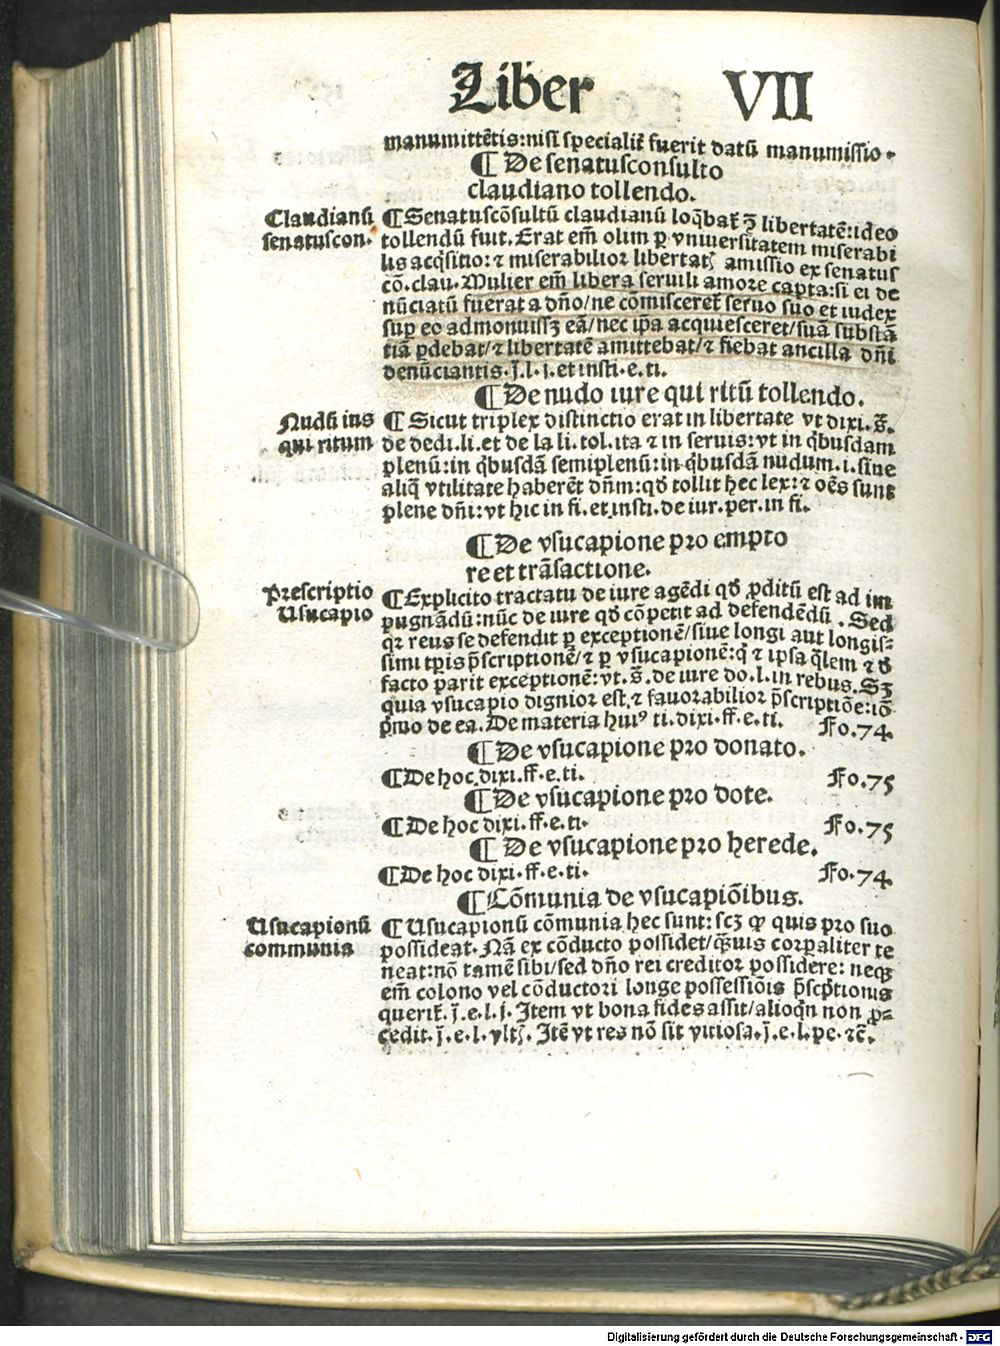 Liber VII
manumittẽtis:nisi specialit̃ fuerit datũ manumissio.
¶ De senatusconsulto
claudiano tollendo.
Claudianũ
senatuscon.
¶ Senatuscõsultũ claudianũ loq̃bat̃ ꝫ libertatẽ:ideo
tollendũ fuit. Erat em̃ olim ꝑ vniuersitatem miserabi
lis acq̃sitio:⁊ miserabilior libertatꝭ amissio ex senatus
cõ.clau. Mulier em̃ libera seruili amore capta:si ei de
nũciatũ fuerat a dño/ne cõmisceret̃ seruo suo et iudex
suꝑ eo admonuissꝫ eã/nec ip̃a acquiesceret/suã substã
tiã ꝑdebat/⁊ libertatẽ amittebat/⁊ fiebat ancilla dñi
denũciantis.j̃.l.j.et insti.e.ti.
¶ De nudo iure qui ritũ tollendo.
Nudũ ius
qui ritum
¶ Sicut triplex distinctio erat in libertate vt dixi.s̃.
de dedi.li.et de la li.tol.ita ⁊ in seruis:vt in q̃busdam
plenũ:in q̃busdã semiplenũ:in q̃busdã nudum.i.sine
aliq̃ vtilitate haberẽt dñm:qđ tollit hec lex:⁊ oẽs sunt
plene dñi:vt hic in fi.et insti.de iur.per.in fi.
¶ De vsucapione pro empto
re et trãsactione.
Prescriptio
Usucapio
¶ Explicito tractatu de iure agẽdi qđ ꝓditũ est ad im
pugnãdũ:nũc de iure qđ cõpetit ad defendẽdũ. Sed
qr reus se defendit ꝑ exceptionẽ/siue longi aut longis⸗
simi tꝑis p̃scriptionẽ/⁊ ꝑ vsucapionẽ:q̃ ⁊ ipsa q̃lem ⁊ đ
facto parit exceptionẽ:vt.s̃.de iure do.l.in rebus. Sꝫ
quia vsucapio dignior est,⁊ fauorabilior p̃scriptiõe:iõ
p̃mo de ea. De materia huiꝰ ti.dixi.ff.e.ti. Fo.74.
¶ De vsucapione pro donato.
¶ De hoc dixi.ff.e.ti. Fo.75
¶ De vsucapione pro dote.
¶ De hoc dixi.ff.e.ti. Fo.75
¶ De vsucapione pro herede.
¶ De hoc dixi.ff.e.ti. Fo.74.
¶ Cõmunia de vsucapiõibus.
Usucapionũ
communia
¶ Usucapionũ cõmunia hec sunt:scꝫ ꝙ quis pro suo
possideat. Nã ex cõducto possidet/q̃uis corꝑaliter te
neat:nõ tamẽ sibi/sed dño rei creditor possidere:neqꝫ
em̃ colono vel cõductori longe possessiõis p̃scp̃tionis
querit̃.j̃.e.l.j. Item vt bona fides assit/alioq̃n non ꝓ⸗
cedit.j̃.e.l.vltꝭ. Itẽ vt res nõ sit vitiosa.j̃.e.l.pe.⁊c̃.
Digitalisierung gefördert durch die Deutsche Forschungsgemeinschaft - DFG